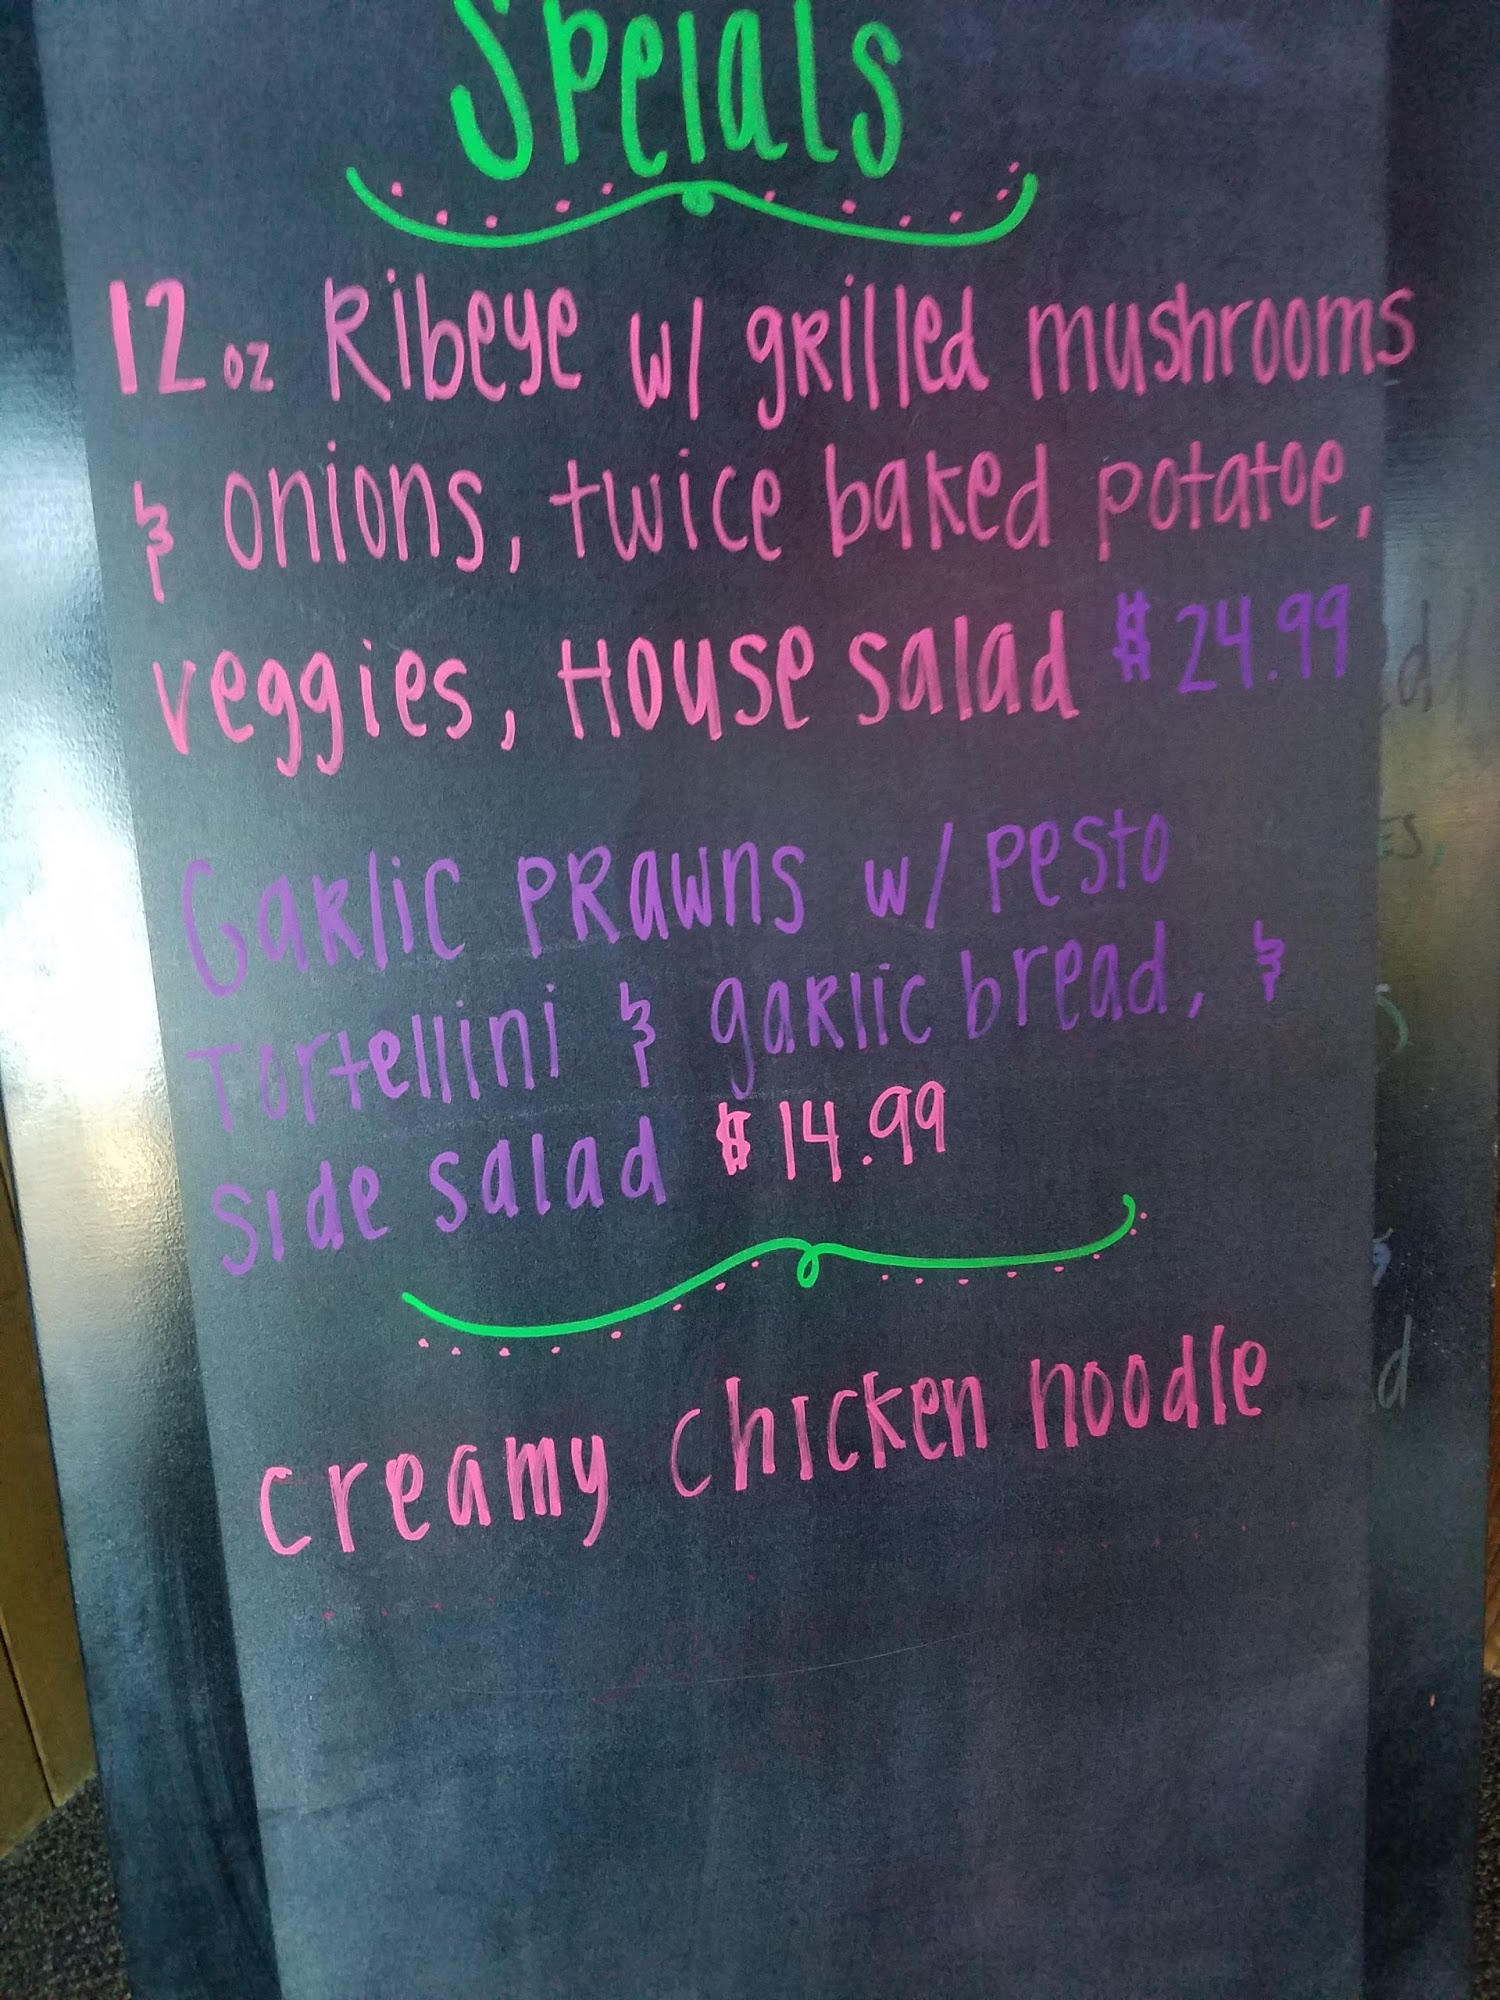 Spelals
12 oz Ribeye w/ grilled mushrooms
& onions, twice baked potatoe,
veggies, House salad $24.99
Garlic prawns w/ pesto
Tortellini & garlic bread, &
side salad $14.99
creamy chicken noodle